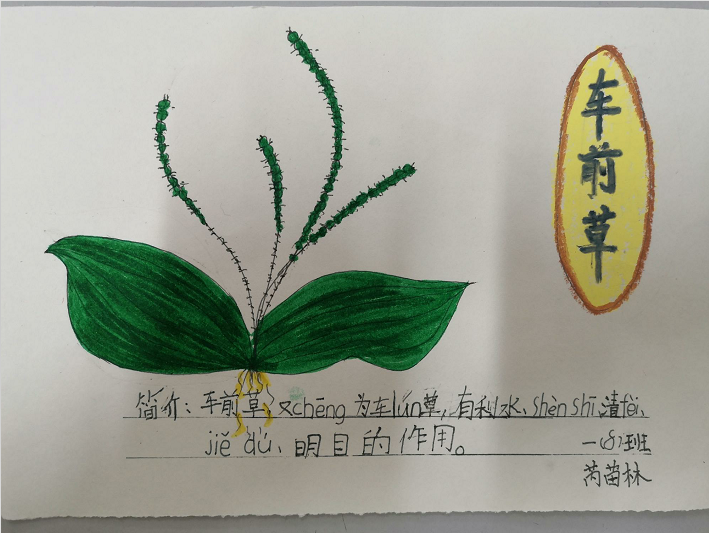 车前草
简介：车前草、又chēng为车lún草，有利水、shèn shī、清fèi、
jiě dú、明目的作用。
一(8)班
芮苗林